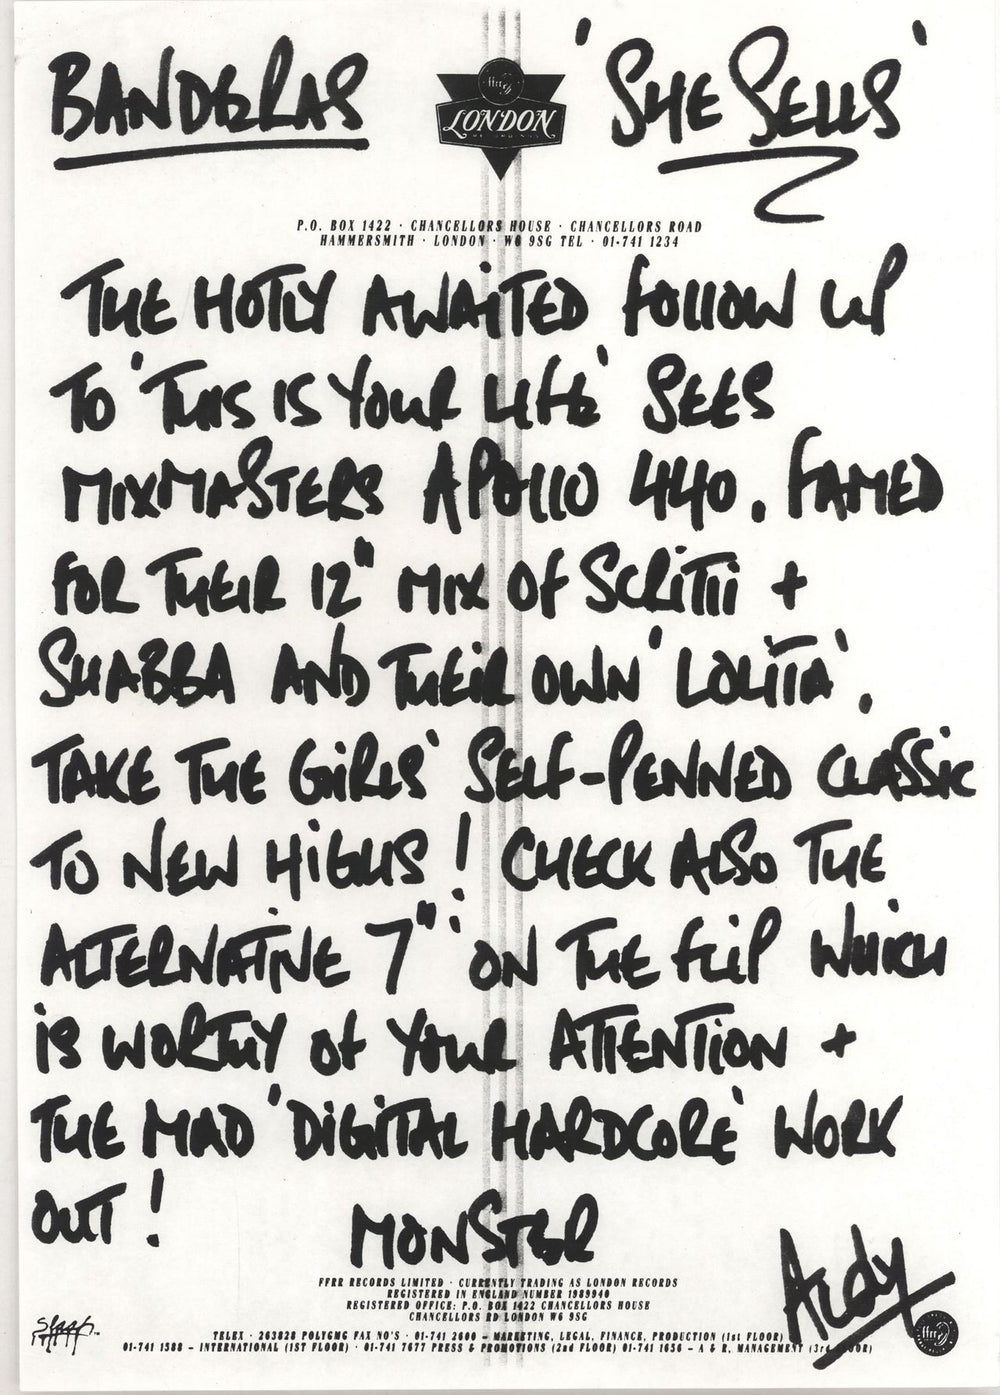 BANDERAS
'SHE SELLS'
ffrr
LONDON
P.O. BOX 1422 · CHANCELLORS HOUSE · CHANCELLORS ROAD
HAMMERSMITH · LONDON · W6 9SG TEL · 01-741 1234
THE HOTLY AWAITED FOLLOW UP
TO 'THIS IS YOUR LIFE' SEES
MIXMASTERS APOLLO 440, FAMED
FOR THEIR 12" MIX OF SCRITTI +
SHABBA AND THEIR OWN 'LOLITA',
TAKE THE GIRLS' SELF-PENNED CLASSIC
TO NEW HIGHS! CHECK ALSO THE
ALTERNATIVE 7" ON THE FLIP WHICH
IS WORTHY OF YOUR ATTENTION +
THE MAD 'DIGITAL HARDCORE' WORK
OUT!
MONSTER
Andy
FFRR RECORDS LIMITED · CURRENTLY TRADING AS LONDON RECORDS
REGISTERED IN ENGLAND NUMBER 1989940
REGISTERED OFFICE: P.O. BOX 1422 CHANCELLORS HOUSE
CHANCELLORS RD LONDON W6 9SG
TELEX · 263828 POLYGMG FAX NO'S · 01-741 2600 – MARKETING, LEGAL, FINANCE, PRODUCTION (1st FLOOR)
01-741 1588 – INTERNATIONAL (1ST FLOOR) · 01-741 7677 PRESS & PROMOTIONS (2nd FLOOR) 01-741 1656 – A & R, MANAGEMENT (3rd FLOOR)
ffrr